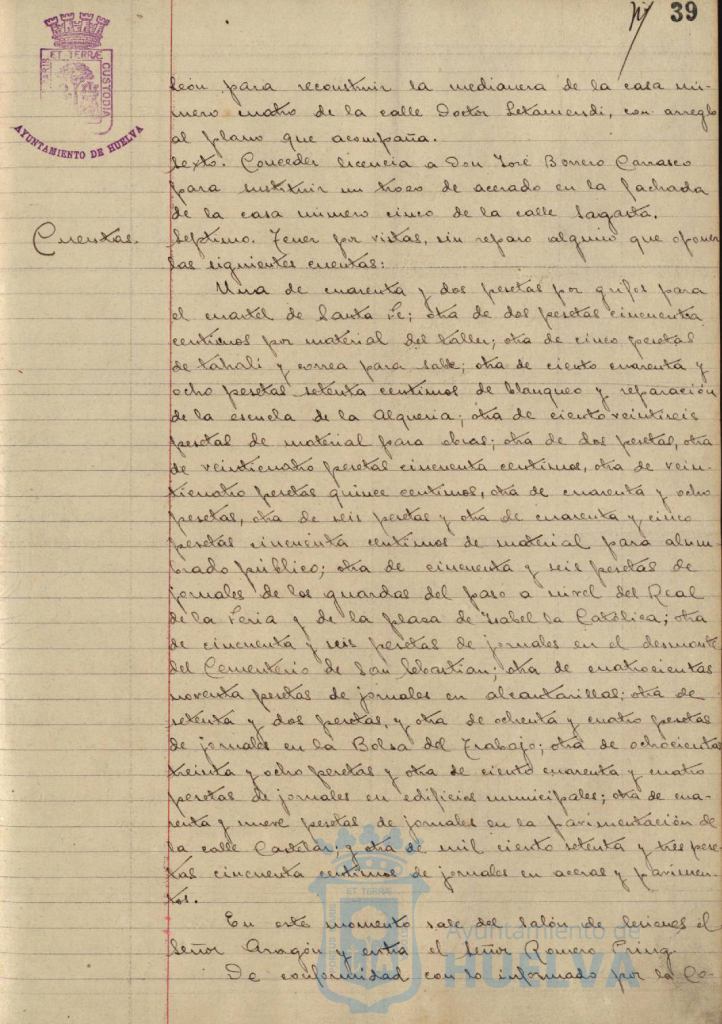 39
PORTUS MARIS ET TERRÆ CUSTODIA
AYUNTAMIENTO DE HUELVA
león, para reconstruir la medianera de la casa nú-
mero cuatro de la calle Doctor Letamendi, con arreglo
al plano que acompaña.
Sexto. Conceder licencia a Don José Borrero Carrasco
para sustituir un trozo de acerado en la fachada
de la casa número cinco de la calle Sagasta.
Cuentas.
Séptimo. Tener por vistas, sin reparo alguno que oponer
las siguientes cuentas:
Una de cuarenta y dos pesetas por grifos para
el cuartel de Santa Fe; otra de dos pesetas cincuenta
centimos por material del taller; otra de cinco pesetas
de tahalí y correa para sable; otra de ciento cuarenta y
ocho pesetas setenta centimos de blanqueo y reparación
de la escuela de la Alqueria; otra de ciento veintiseis
pesetas de material para obras; otra de dos pesetas, otra
de veinticuatro pesetas cincuenta centimos, otra de vein-
ticuatro pesetas quince centimos, otra de cuarenta y ocho
pesetas, otra de seis pesetas y otra de cuarenta y cinco
pesetas cincuenta centimos de material para alum-
brado público; otra de cincuenta y seis pesetas de
jornales de los guardas del paso a nivel del Real
de la Feria y de la plaza de Isabel la Católica; otra
de cincuenta y seis pesetas de jornales en el desmonte
del Cementerio de San Sebastian; otra de cuatrocientas
noventa pesetas de jornales en alcantarillas; otra de
setenta y dos pesetas, y otra de ochenta y cuatro pesetas
de jornales en la Bolsa del Trabajo; otra de ochocientas
treinta y ocho pesetas y otra de ciento cuarenta y cuatro
pesetas de jornales en edificios municipales; otra de cua-
renta y nueve pesetas de jornales en la pavimentación de
la calle Castelar; y otra de mil ciento setenta y tres pese-
tas cincuenta centimos de jornales en aceras y pavimen-
tos.
En este momento sale del salón de sesiones el
Señor Aragón y entra el Señor Romero Pring.
De conformidad con lo informado por la Co-
Ayuntamiento de
HUELVA